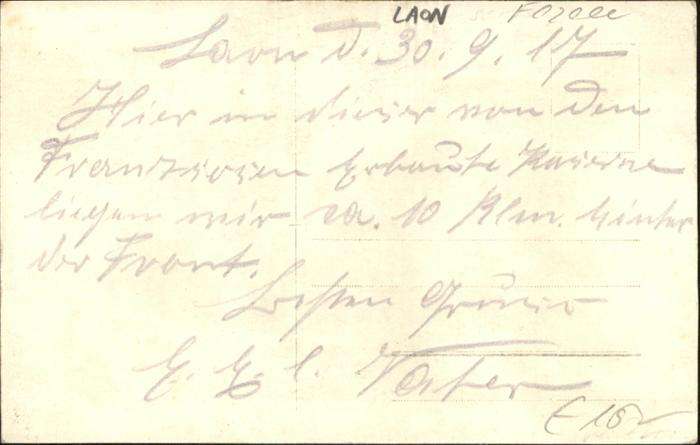 LAON
Laon d. 30.9.17
Hier in dieser von den
Franzosen erbaute Kaserne
liegen wir ca. 10 Klm. hinter
der Front.
Besten Grüsse
Vater